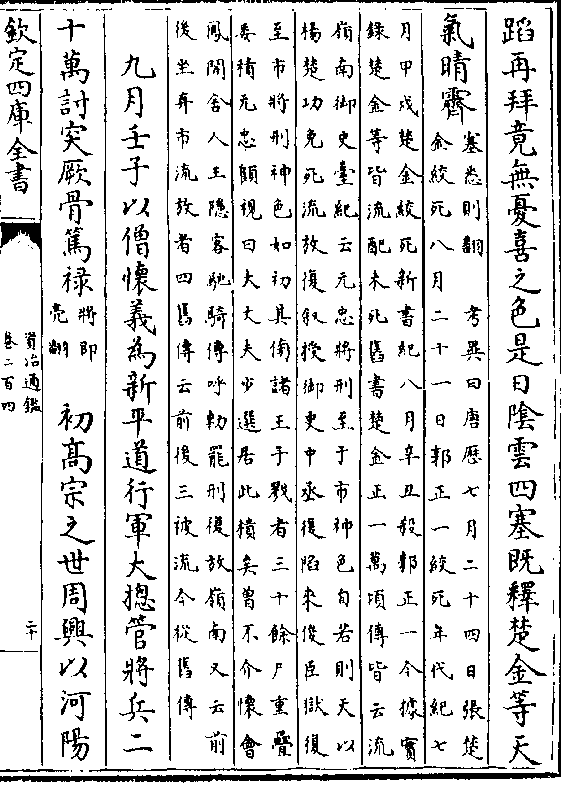 蹈再拜竟無憂喜之色是日陰雲四塞既釋楚金等天
氣晴霽塞悉則翻考異曰唐歴七月二十四日張楚
金絞死八月二十一日郭正一絞死年代紀七
月甲戌楚金絞死新書紀八月辛丑殺郭正一今據實
錄楚金等皆流配未死舊書楚金正一萬頃傳皆云流
嶺南御史臺紀云元忠將刑至于市神色自若則天以
楊楚功免死流放復叙授御史中丞復陷來俊臣獄復
至市將刑神色如初其傍諸王子戮者三十餘尸重疊
委積元忠顧視曰大丈夫少選居此積矣曽不介懷會
鳳閣舍人王隠客馳騎傳呼勅罷刑復放嶺南又云前
後坐弃市流放者四舊傳云前後三被流今從舊傳
九月壬子以僧懷義為新平道行軍大揔管將兵二
十萬討突厥骨篤祿將即亮翻初高宗之世周興以河陽
欽定四庫全書
資治通鑑
卷二百四
二十